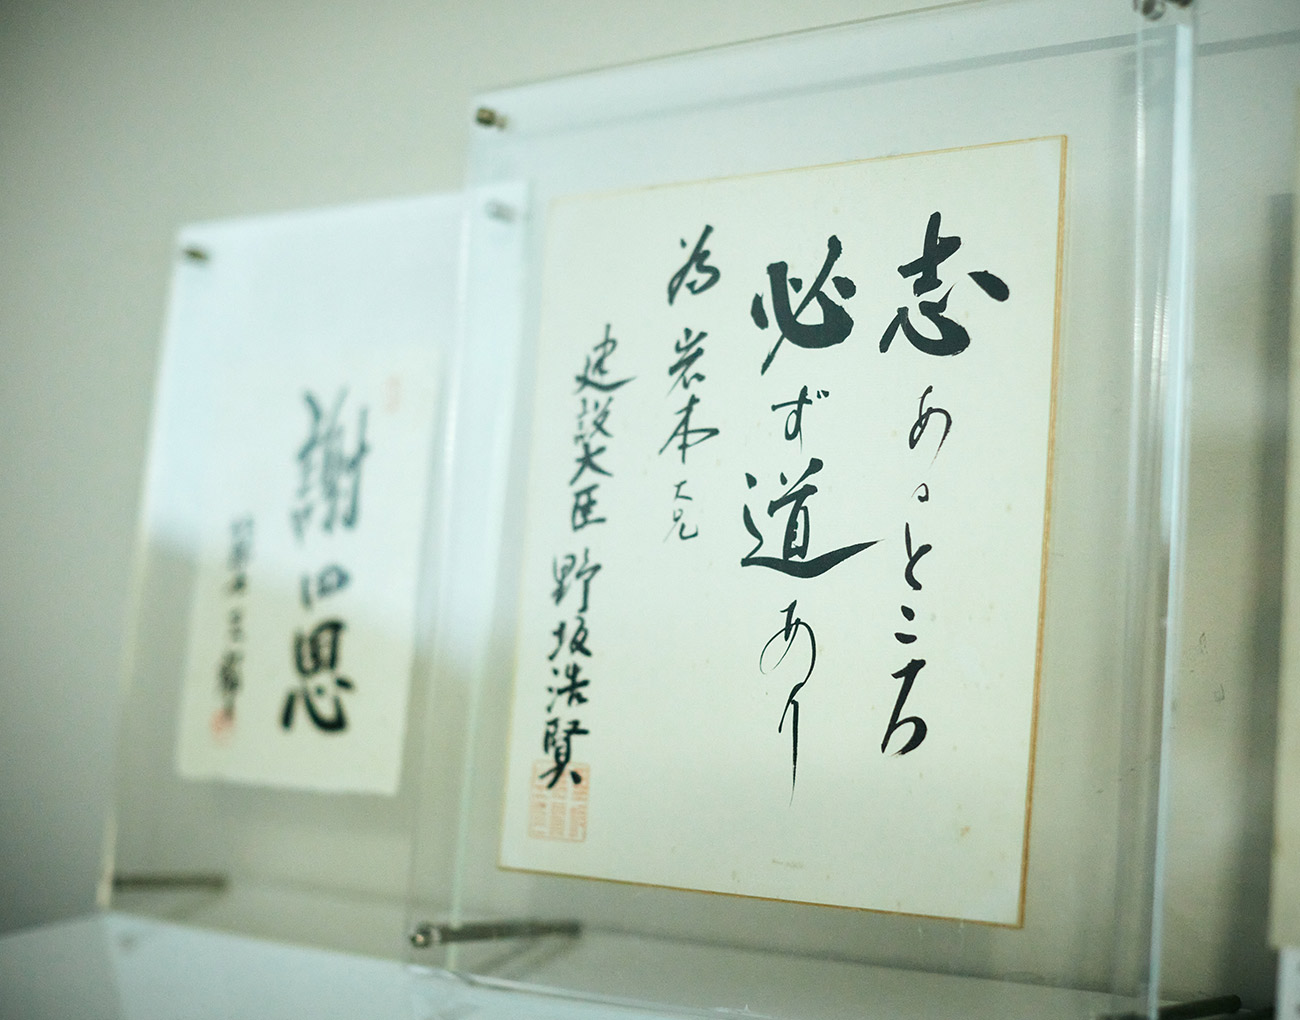 志あるところ
必ず道あり
為 岩本大兄
建設大臣 野坂浩賢
謝四恩